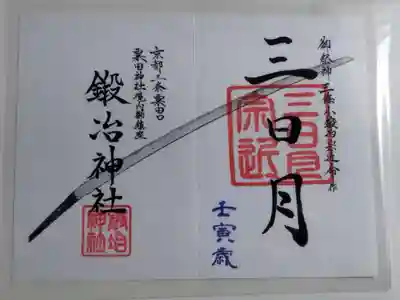 御祭神 三條小鍛冶宗近命作
三日月
三日月
宗近
壬寅歳
京都三条粟田口
粟田神社境内鎮座
鍛冶神社
鍛冶
神社